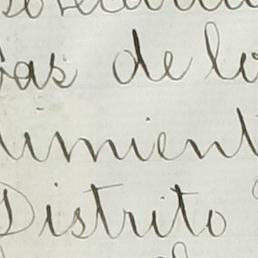 as de lo
imient
Distrito